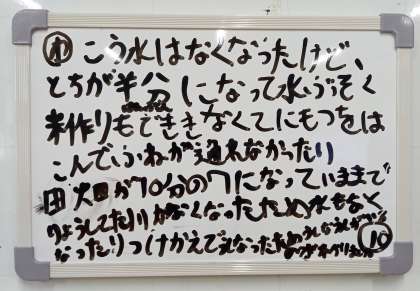 わ こう水はなくなったけど、
とちが半分になって水ぶそく
米作りもできなくてにもつをは
こんでいふねが通れなかったり
田 火田が10分の7になっていままで
りようしてた川がなくなったため水もなく
なったりつけかえでうなったため
10